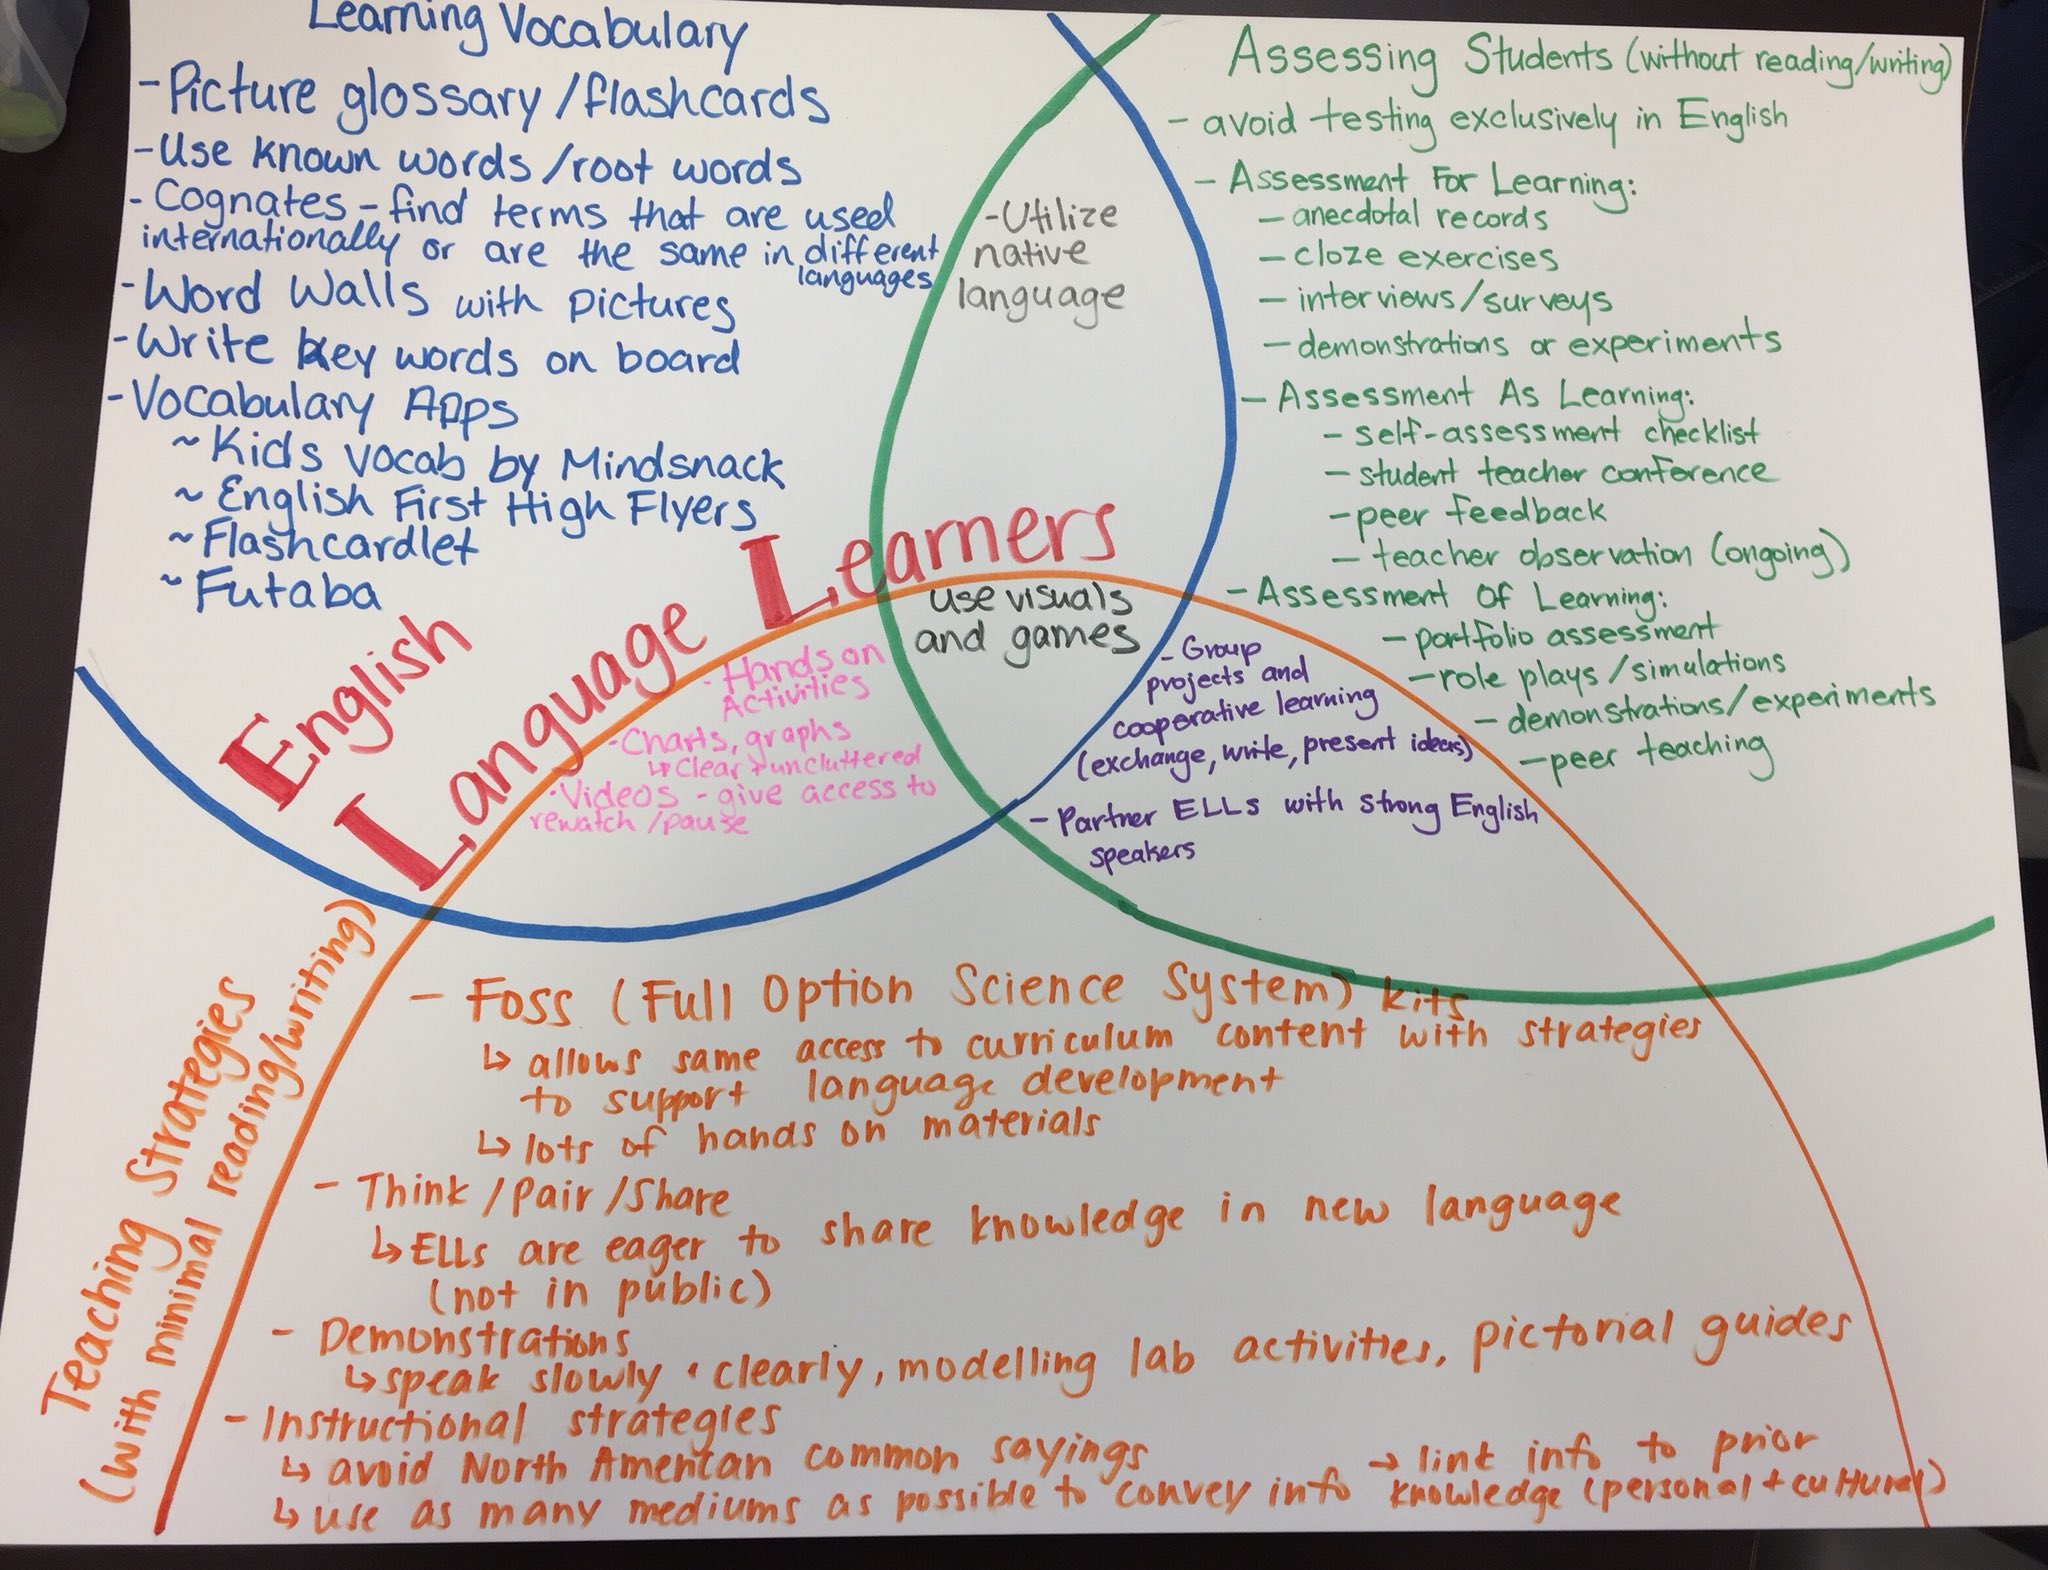 Learning Vocabulary
- Picture glossary/flashcards
- Use known words/root words
- Cognates - find terms that are used
internationally or are the same in different
languages
- Word Walls with pictures
- Write key words on board
- Vocabulary Apps
~ Kids vocab by Mindsnack
~ English First High Flyers
~ Flashcardlet
~ Futaba
- Utilize
native
language
Assessing Students (without reading/writing)
- avoid testing exclusively in English
- Assessment For Learning:
- anecdotal records
- cloze exercises
- interviews/surveys
- demonstrations or experiments
- Assessment As Learning:
- self-assessment checklist
- student teacher conference
- peer feedback
- teacher observation (ongoing)
- Assessment Of Learning:
- portfolio assessment
- role plays/simulations
- demonstrations/experiments
- peer teaching
English
Language Learners
use visuals
and games
- Hands on
Activities
- Charts, graphs
↳ Clear + uncluttered
- Videos - give access to
rewatch/pause
- Group
projects and
cooperative learning
(exchange, write, present ideas)
- Partner ELLs with strong English
speakers
Teaching Strategies
(with minimal reading/writing)
- Foss (Full Option Science System) kits
↳ allows same access to curriculum content with strategies
to support language development
↳ lots of hands on materials
- Think/Pair/Share
↳ ELLs are eager to share knowledge in new language
(not in public)
- Demonstrations
↳ speak slowly + clearly, modelling lab activities, pictorial guides
- Instructional strategies
↳ avoid North American common sayings
↳ use as many mediums as possible to convey info
→ link info to prior
knowledge (personal + cultural)